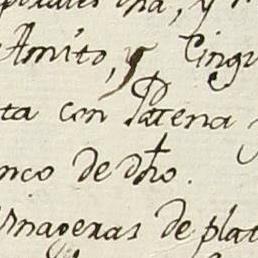 Amito, y Cingu
ta con Patena y
nco de dho.
vinageras de plat